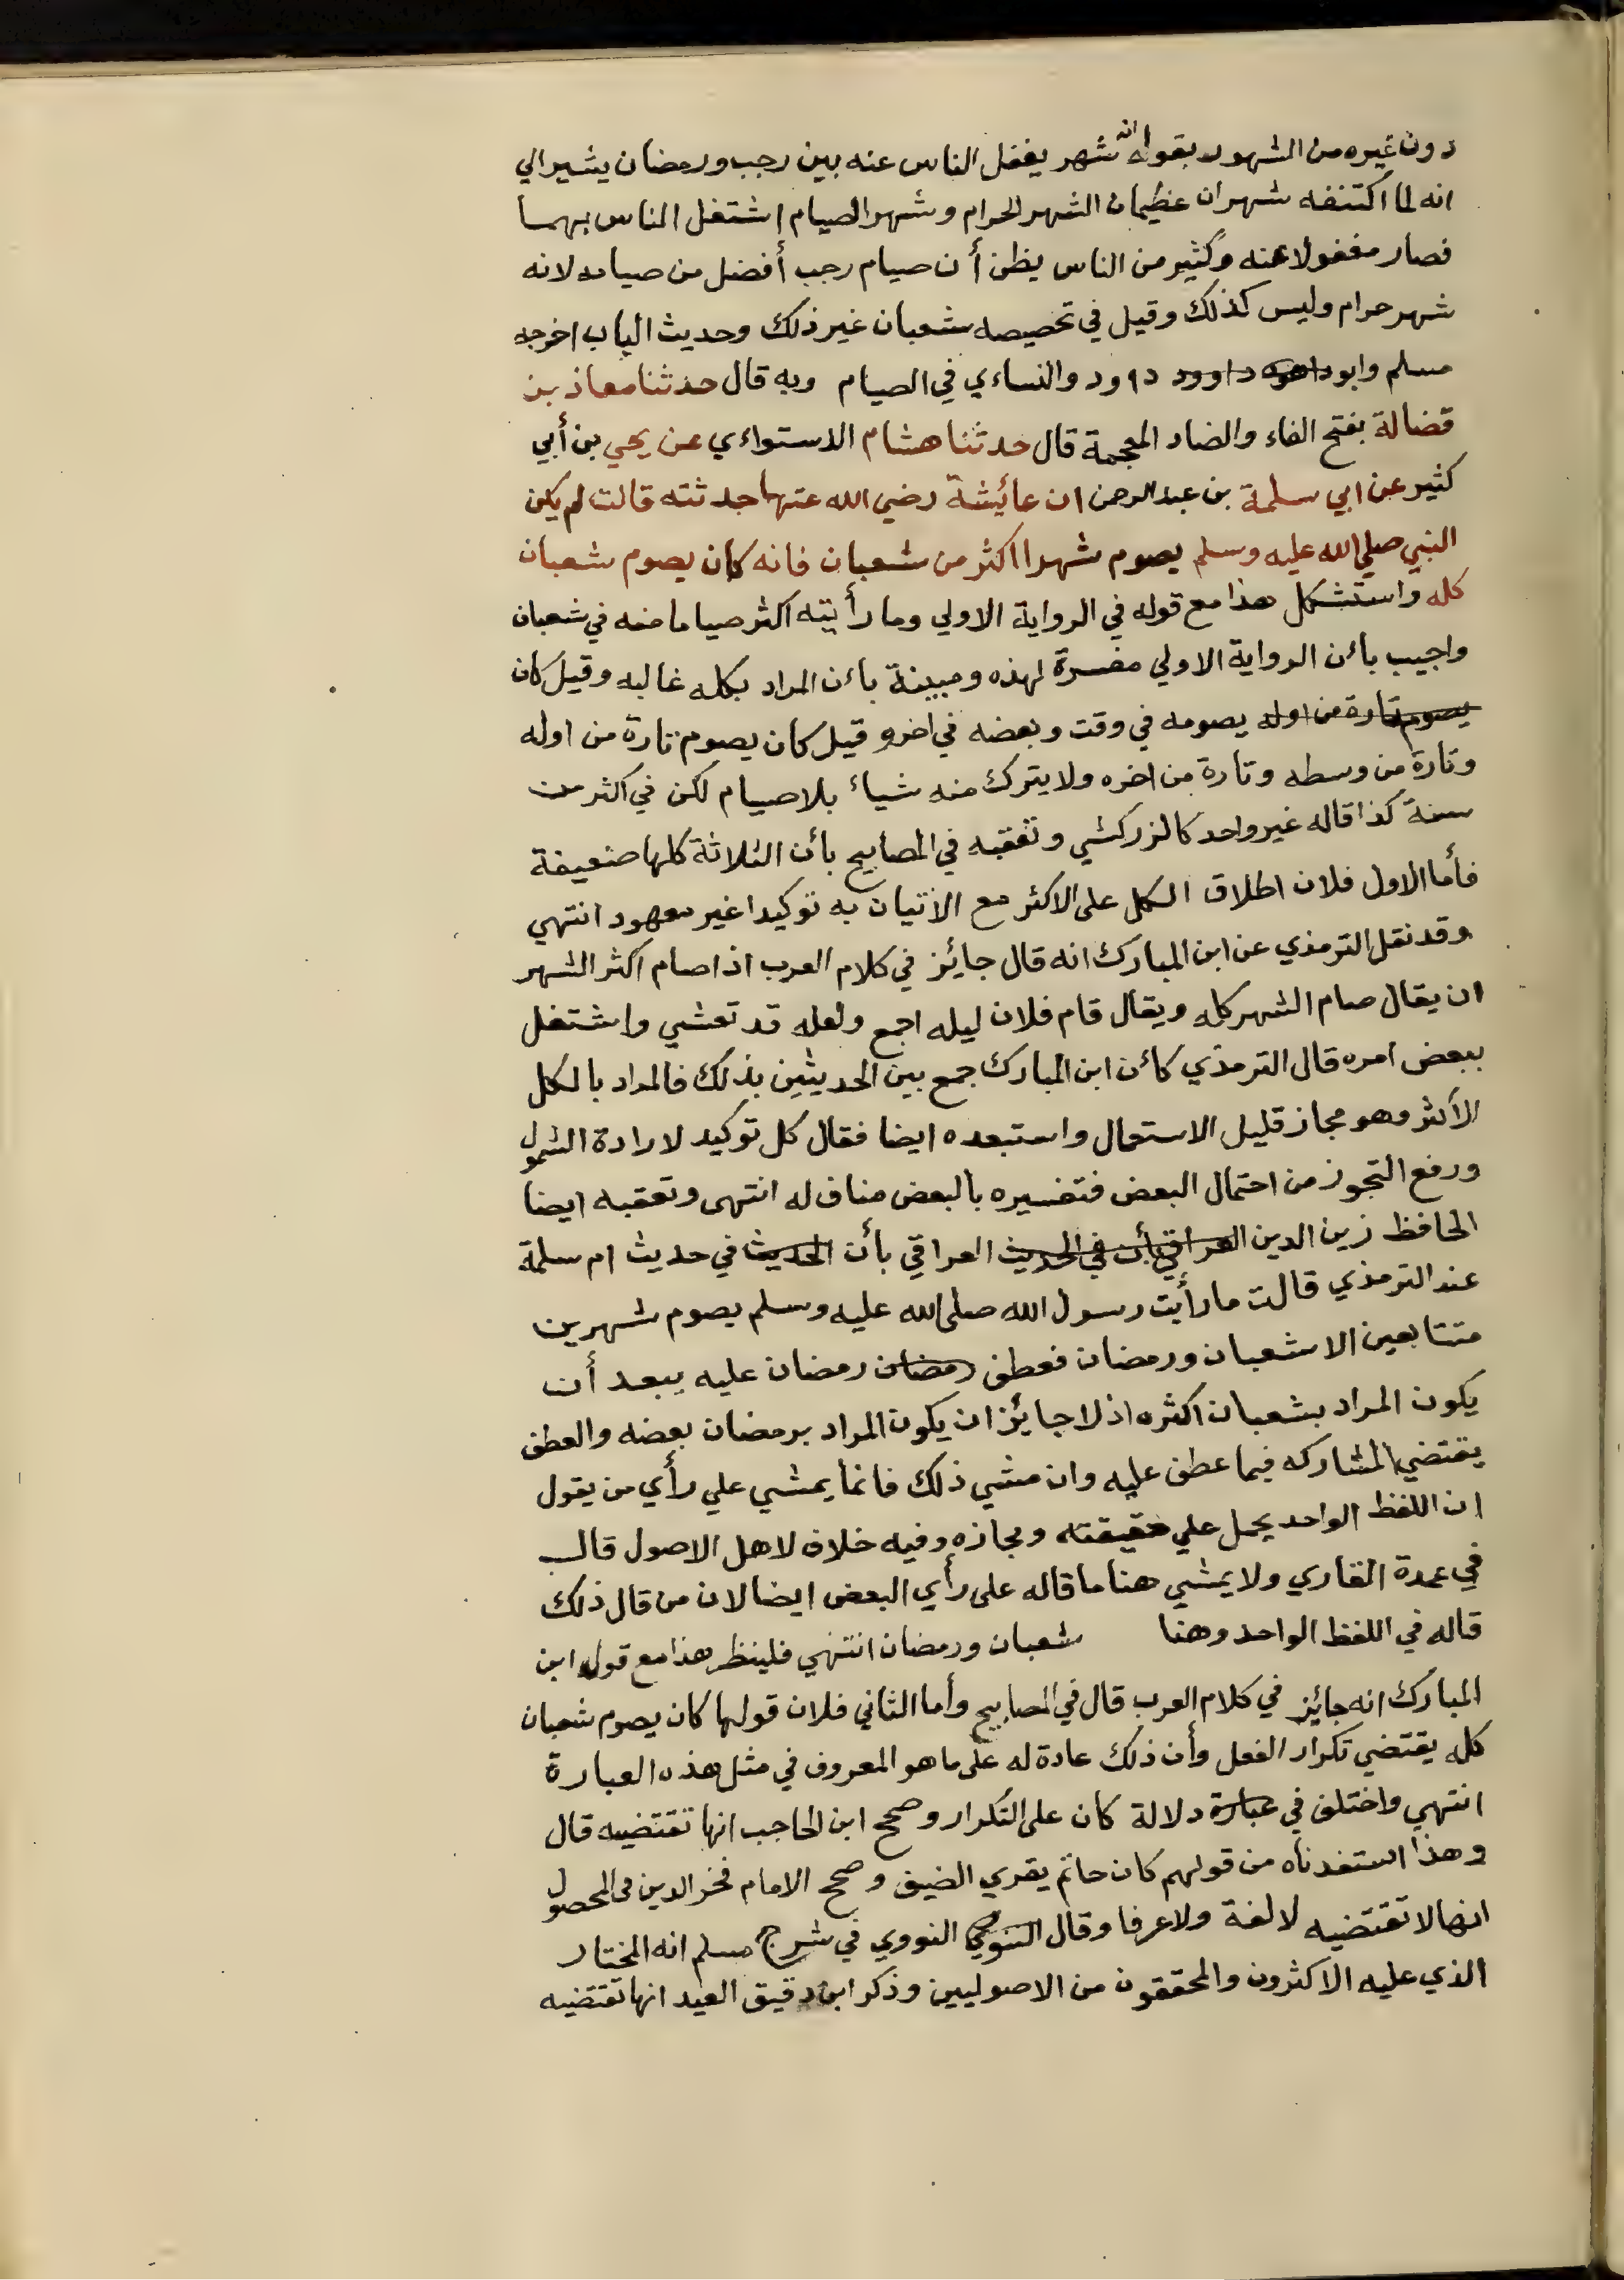 دون غيره من الشهور بقوله انه شهر يغفل الناس عنه بين رجب ورمضان يشير الي
انه لما اكتنفه شهران عظيمان الشهر الحرام وشهر الصيام اشتغل الناس بهما
فصار مغفولا عنه وكثير من الناس يظن أن صيام رجب أفضل من صيامه لانه
شهر حرام وليس كذلك وقيل في تخصيصه شعبان غير ذلك وحديث الباب اخرجه
مسلم وابو داوود داود والنساءي في الصيام وبه قال حدثنا معاذ بن
فضالة بفتح الفاء والضاد المعجمة قال حدثنا هشام الدستواءي عن يحي بن أبي
كثير عن ابي سلمة بن عبد الرحمن ان عائيشة رضي الله عنها حدثته قالت لم يكن
النبي صلي الله عليه وسلم يصوم شهرا اكثر من شعبان فانه كان يصوم شعبان
كله واستشكل هذا مع قوله في الرواية الاولي وما رأيته اكثر صياما منه في شعبان
واجيب بائن الرواية الاولي مفسرة لهذه ومبينة بائن المراد بكله غالبه وقيل كان
يصوم تارة من اوله يصومه في وقت وبعضه في اخر وقيل كان يصوم تارة من اوله
وتارة من وسطه وتارة من اخره ولا يترك منه شياء بلا صيام لكن في اكثر من
سنة كذا قاله غير واحد كالزركشي وتعقبه في المصابيح بائن الثلاثة كلها ضعيفة
فأما الاول فلان اطلاق الكل على الاكثر مع الاتيان به توكيدا غير معهود انتهي
وقد نقل الترمذي عن ابن المبارك انه قال جائيز في كلام العرب اذا صام اكثر الشهر
ان يقال صام الشهر كله ويقال قام فلان ليله اجمع ولعله قد تعشي واشتغل
ببعض امره قال الترمذي كائن ابن المبارك جمع بين الحديثين بذلك فالمراد بالكل
الأكثر وهو مجاز قليل الاستعمال واستبعده ايضا فقال كل توكيد لارادة الشمول
ورفع التجوز من احتمال البعض فتفسيره بالبعض مناف له انتهى وتعقبه ايضا
الحافظ زين الدين العراقي بأن في الحديث العراقي بأن الحديث في حديث ام سلمة
عند الترمذي قالت ما رأيت رسول الله صلى الله عليه وسلم يصوم شهرين
متتابعين الا شعبان ورمضان فعطف رمضان رمضان عليه يبعد أن
يكون المراد بشعبان اكثره اذ لا جائيز ان يكون المراد برمضان بعضه والعطف
يقتضي المشاركه فيما عطف عليه وان مشي ذلك فانما يمشي علي رأي من يقول
ان اللفظ الواحد يحمل علي حقيقته ومجازه وفيه خلاف لاهل الاصول قال
في عمدة القاري ولا يمشي هنا ما قاله على رأي البعض ايضا لان من قال ذلك
قاله في اللفظ الواحد وهنا شعبان ورمضان انتهي فلينظر هذا مع قول ابن
المبارك انه جائيز في كلام العرب قال في المصابيح وأما الثاني فلان قولها كان يصوم شعبان
كله يقتضي تكرار الفعل وأن ذلك عادة له على ما هو المعروف في مثل هذه العبارة
انتهي واختلف في عبارة دلالة كان على التكرار وصحح ابن الحاجب انها تقتضيه قال
وهذا استفدناه من قولهم كان حاتم يقري الضيف وصحح الامام فخر الدين في المحصول
انها لا تقتضيه لا لغة ولا عرفا وقال النووي النووي في شرح مسلم انه المختار
الذي عليه الاكثرون والمحققون من الاصوليين وذكر ابن دقيق العيد انها تقتضيه